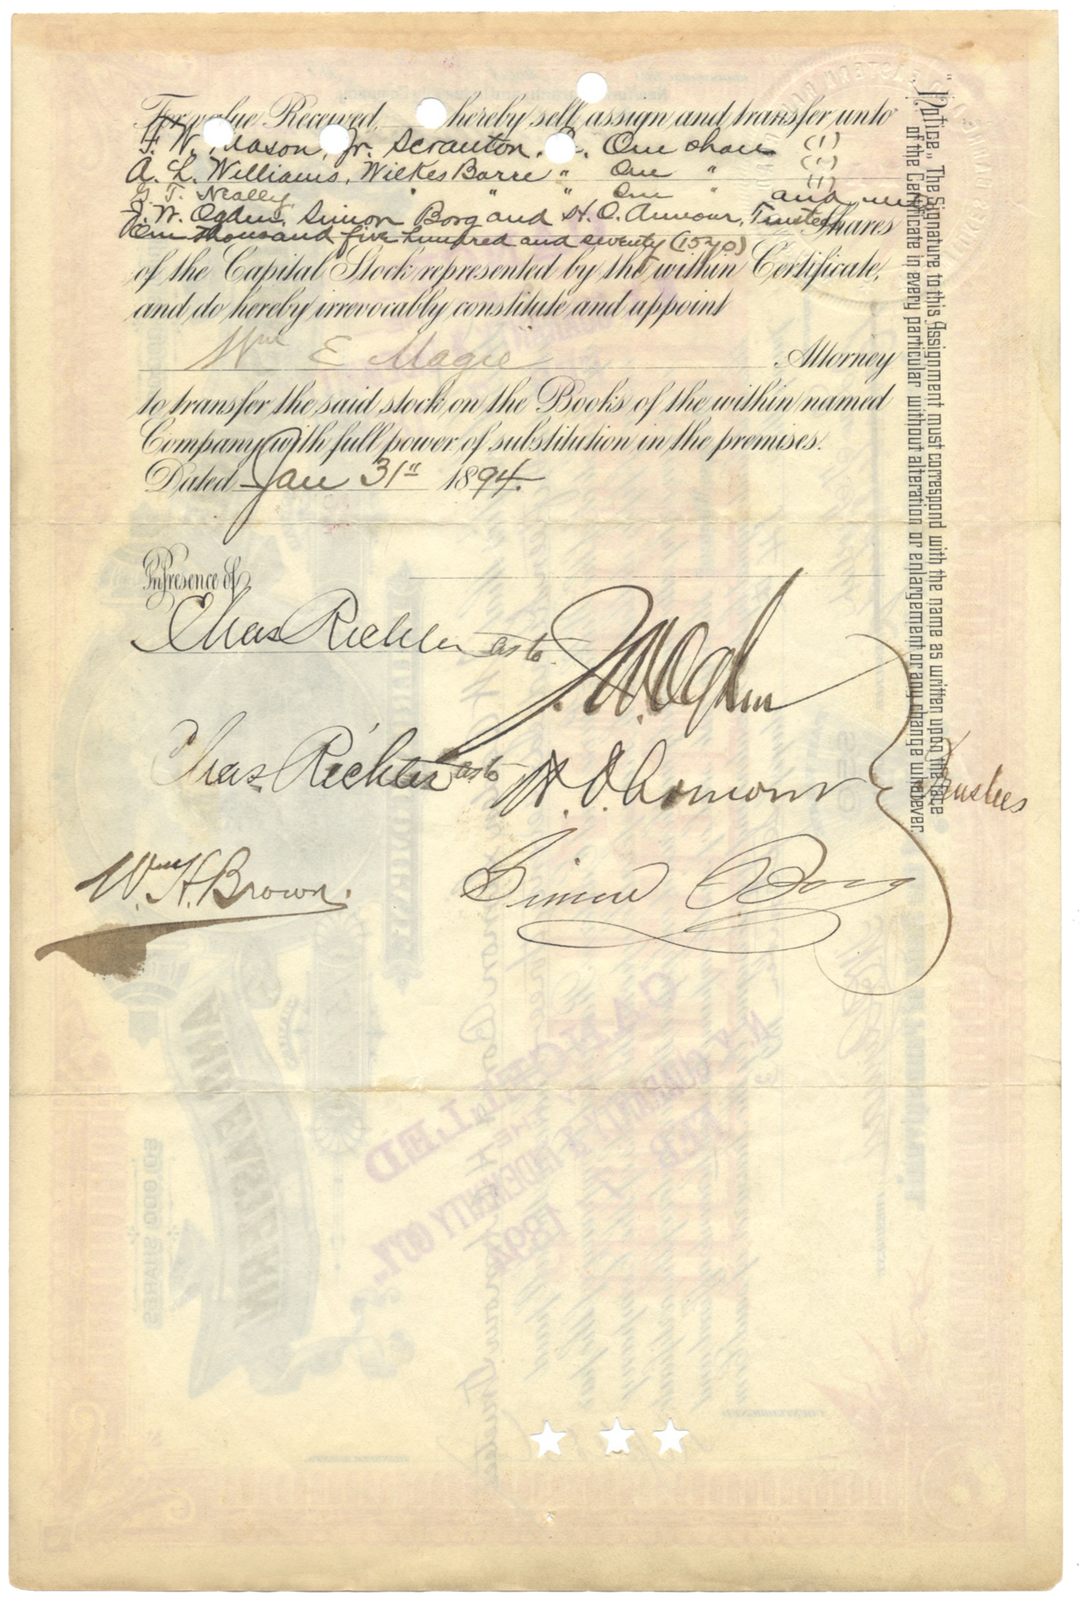 For value Received, hereby sell, assign and transfer unto
F. W. Mason, Jr. Scranton, One share (1)
A. L. Williams, Wilkes Barre " One " (1)
G. T. Neally " " One " (1) and
J. W. Ogden, Simon Borg and H. O. Armour, Trustees Shares
One thousand five hundred and seventy (1570)
of the Capital Stock represented by the within Certificate,
and do hereby irrevocably constitute and appoint
Wm E Magie Attorney
to transfer the said stock on the Books of the within named
Company with full power of substitution in the premises.
Dated Jan 31st 1894.
In Presence of
Chas Richter as to J. W. Ogden
Chas Richter as to H. O. Armour
Trustees
Wm. H. Brown. Simon Borg
"Notice." The Signature to this Assignment must correspond with the name as written upon the face
of the Certificate in every particular without alteration or enlargement or any change whatever.
CANCELLED
N.Y. GUARANTY & INDEMNITY CO.
FEB 1894